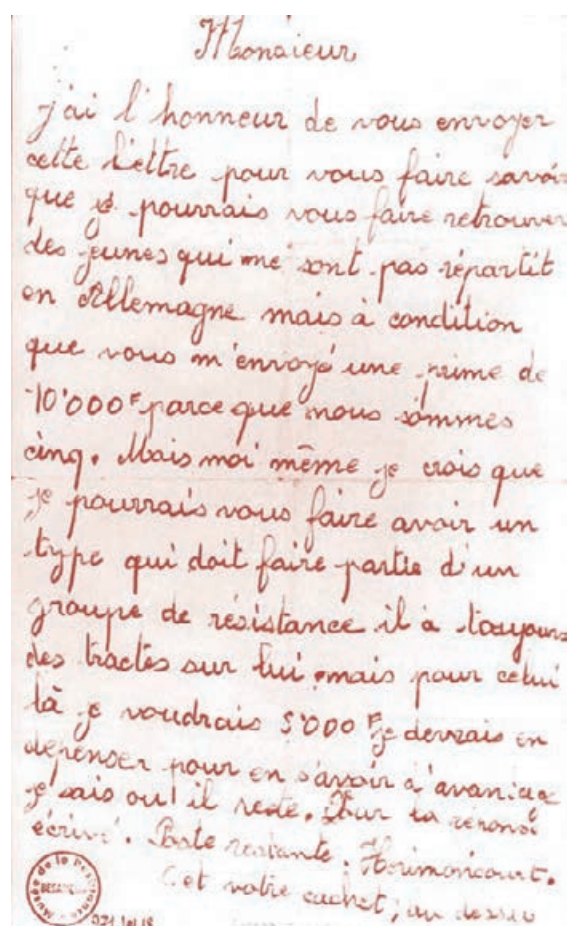 Monsieur
j'ai l'honneur de vous envoyer
cette lettre pour vous faire savoir
que je pourrais vous faire retrouver
des jeunes qui ne sont pas répartit
en Allemagne mais à condition
que vous m'envoyé une prime de
10'000F parce que nous sommes
cinq. Mais moi même je crois que
je pourrais vous faire avoir un
type qui doit faire partie d'un
groupe de résistance il à toujours
des tractes sur lui mais pour celui
là je voudrais 5'000F je devrais en
dépenser pour en savoir d'avantage
je sais ou il reste. Pour la réponse
écrivé. Poste restante. Hérimoncourt.
et votre cachet; au dessu
Musée de la Résistance
BESANÇON